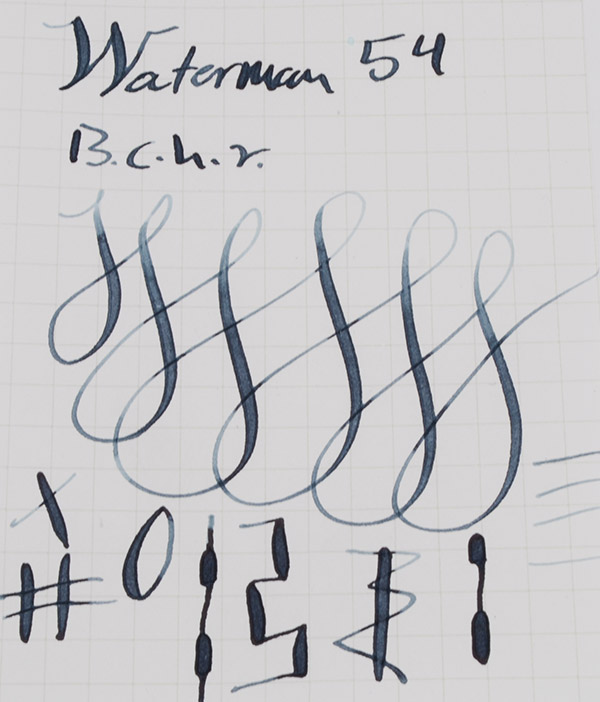 Waterman 54
B.c.h.r.